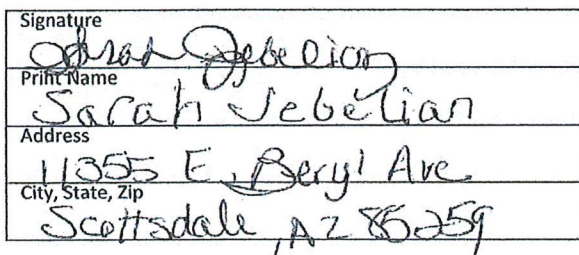 Signature
Sarah Jebelian
Print Name
Sarah Jebelian
Address
11355 E. Beryl Ave
City, State, Zip
Scottsdale, AZ 85259